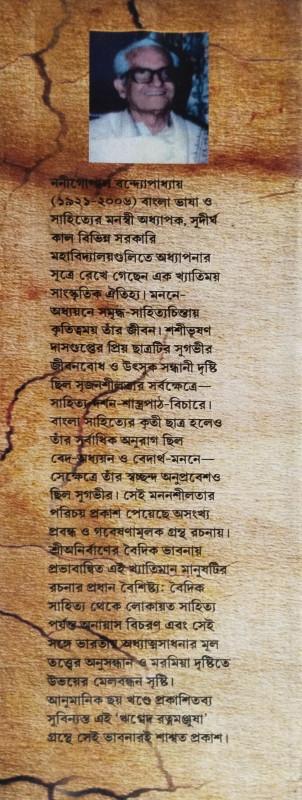 ননীগোপাল বন্দ্যোপাধ্যায়
(১৯২১-২০০৬) বাংলা ভাষা ও
সাহিত্যের মনস্বী অধ্যাপক, সুদীর্ঘ
কাল বিভিন্ন সরকারি
মহাবিদ্যালয়গুলিতে অধ্যাপনার
সূত্রে রেখে গেছেন এক খ্যাতিময়
সাংস্কৃতিক ঐতিহ্য। মননে-
অধ্যয়নে সমৃদ্ধ-সাহিত্যচিন্তায়
কৃতিত্বময় তাঁর জীবন। শশীভূষণ
দাসগুপ্তের প্রিয় ছাত্রটির সুগভীর
জীবনবোধ ও উৎসুক সন্ধানী দৃষ্টি
ছিল সৃজনশীলতার সর্বক্ষেত্রে—
সাহিত্য-দর্শন-শাস্ত্রপাঠ-বিচারে।
বাংলা সাহিত্যের কৃতী ছাত্র হলেও
তাঁর সর্বাধিক অনুরাগ ছিল
বেদ-অধ্যয়ন ও বেদার্থ-মননে—
সেক্ষেত্রে তাঁর স্বচ্ছন্দ অনুপ্রবেশও
ছিল সুগভীর। সেই মননশীলতার
পরিচয় প্রকাশ পেয়েছে অসংখ্য
প্রবন্ধ ও গবেষণামূলক গ্রন্থ রচনায়।
শ্রীঅনির্বাণের বৈদিক ভাবনায়
প্রভাবান্বিত এই খ্যাতিমান মানুষটির
রচনার প্রধান বৈশিষ্ট্য: বৈদিক
সাহিত্য থেকে লোকায়ত সাহিত্য
পর্যন্ত অনায়াস বিচরণ এবং সেই
সঙ্গে ভারতীয় অধ্যাত্মসাধনার মূল
তত্ত্বের অনুসন্ধান ও মরমিয়া দৃষ্টিতে
উভয়ের মেলবন্ধন সৃষ্টি।
আনুমানিক ছয় খণ্ডে প্রকাশিতব্য
সুবিন্যস্ত এই 'ঋগ্বেদ রত্নমঞ্জুষা'
গ্রন্থে সেই ভাবনারই শাশ্বত প্রকাশ।